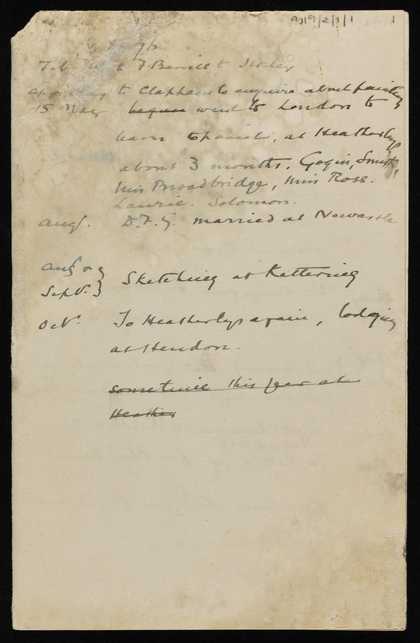 1
Feb. to Sickley
Apr or May to Clapham to enquire about painting
15 May ~~began~~ went to London to
learn to paint, at Heatherley's
about 3 months. Gogin, Smith,
Miss Broadbridge, Miss Rose.
Laurie. Solomon.
Aug. married at Newcastle
Aug or
Sept. } Sketching at Kettering
Oct. To Heatherleys again, lodging
at Hendon.
~~sometime this year at~~
~~Heather~~